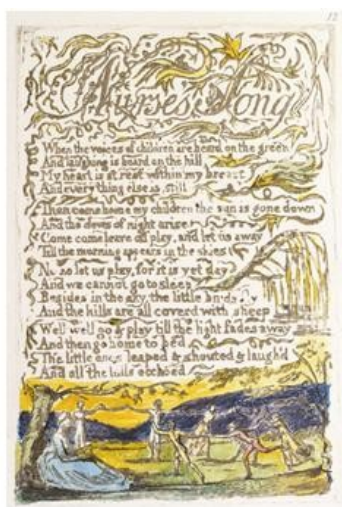 12
Nurse's Song
When the voices of children are heard on the green
And laughing is heard on the hill
My heart is at rest within my breast
And every thing else is still
Then come home my children the sun is gone down
And the dews of night arise
Come come leave off play, and let us away
Till the morning appears in the skies
No no let us play, for it is yet day
And we cannot go to sleep
Besides in the sky, the little birds fly
And the hills are all coverd with sheep
Well well go & play till the light fades away
And then go home to bed
The little ones leaped & shouted & laugh'd
And all the hills ecchoed